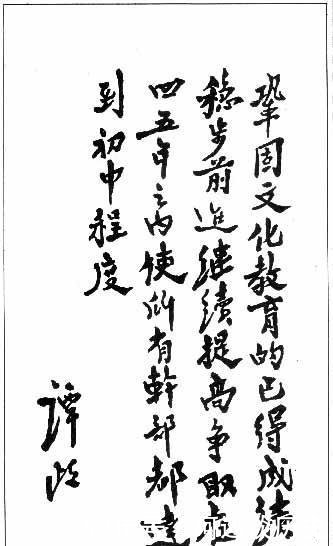 巩固文化教育的已得成绩
稳步前进继续提高争取在
四五年之内使所有幹部都達
到初中程度
譚政